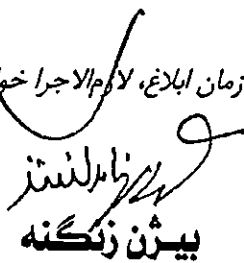 زمان ابلاغ، لازم‌الاجرا خو
بیژن زنگنه